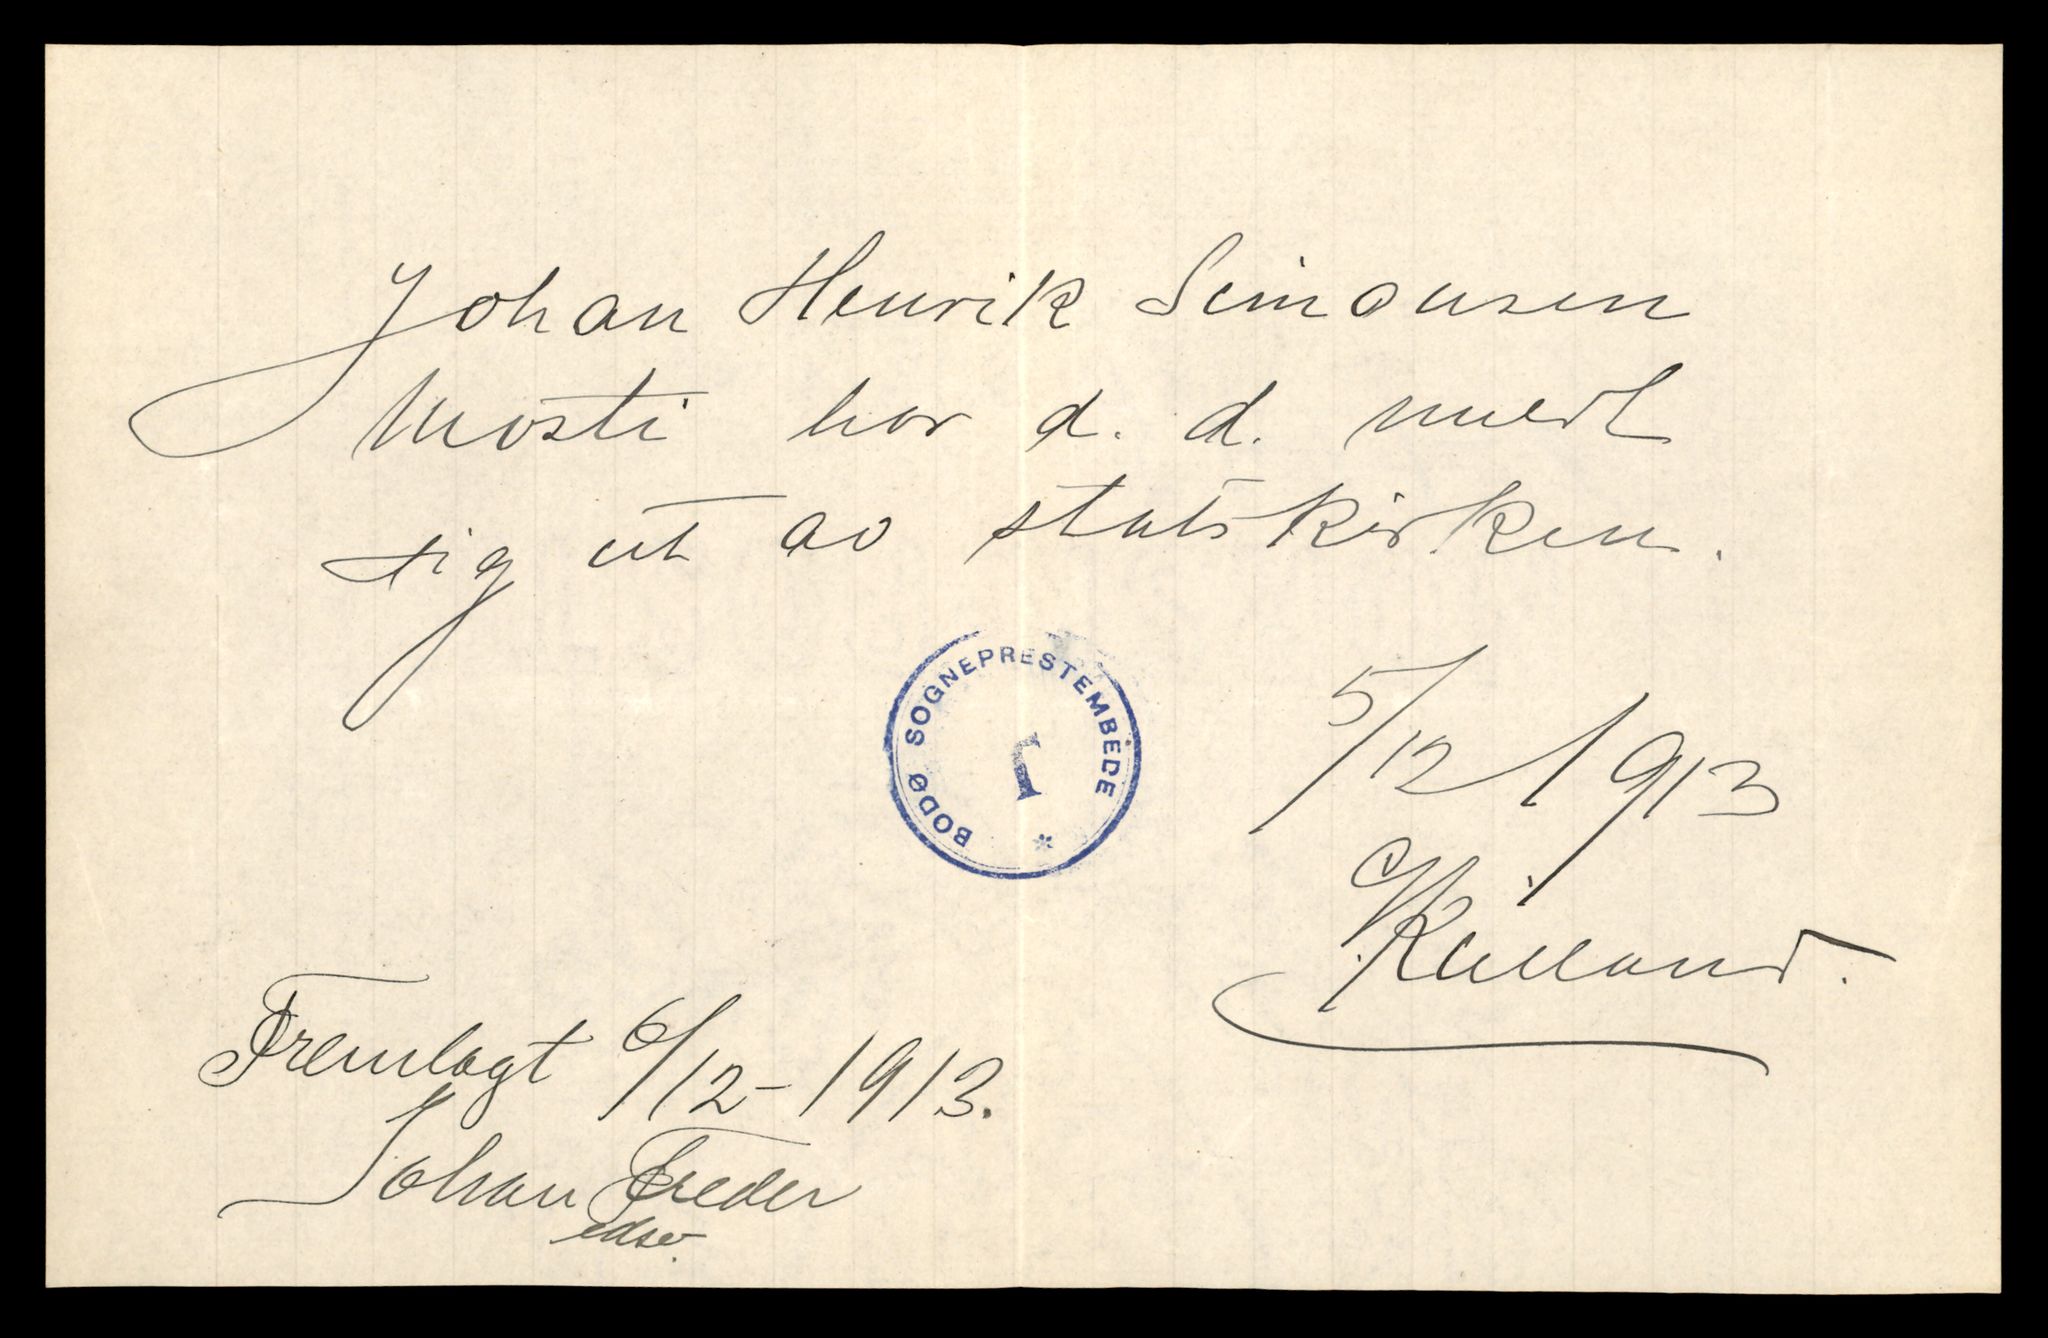 Johan Henrik Simonsen
Mosti har d. d. meldt
sig ut av statskirken.
BODØ SOGNEPRESTEMBEDE *
5/12 1913
Kielland.
Fremlagt 6/12-1913.
Johan Freder
edsv.